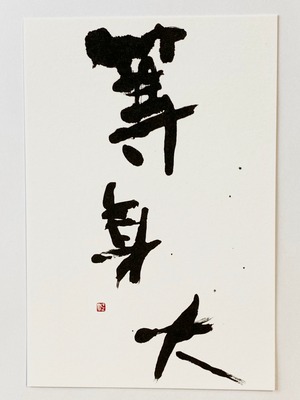 等身大